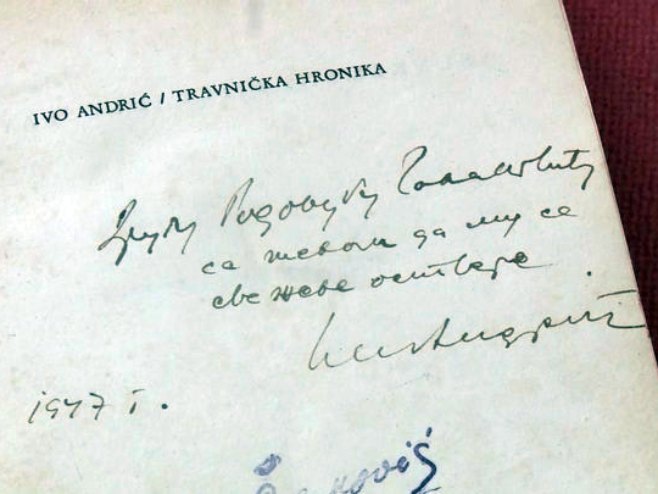 IVO ANDRIĆ / TRAVNIČKA HRONIKA
Другу
са жељом да му се
све жеље остваре.
Иво Андрић
1947 г.